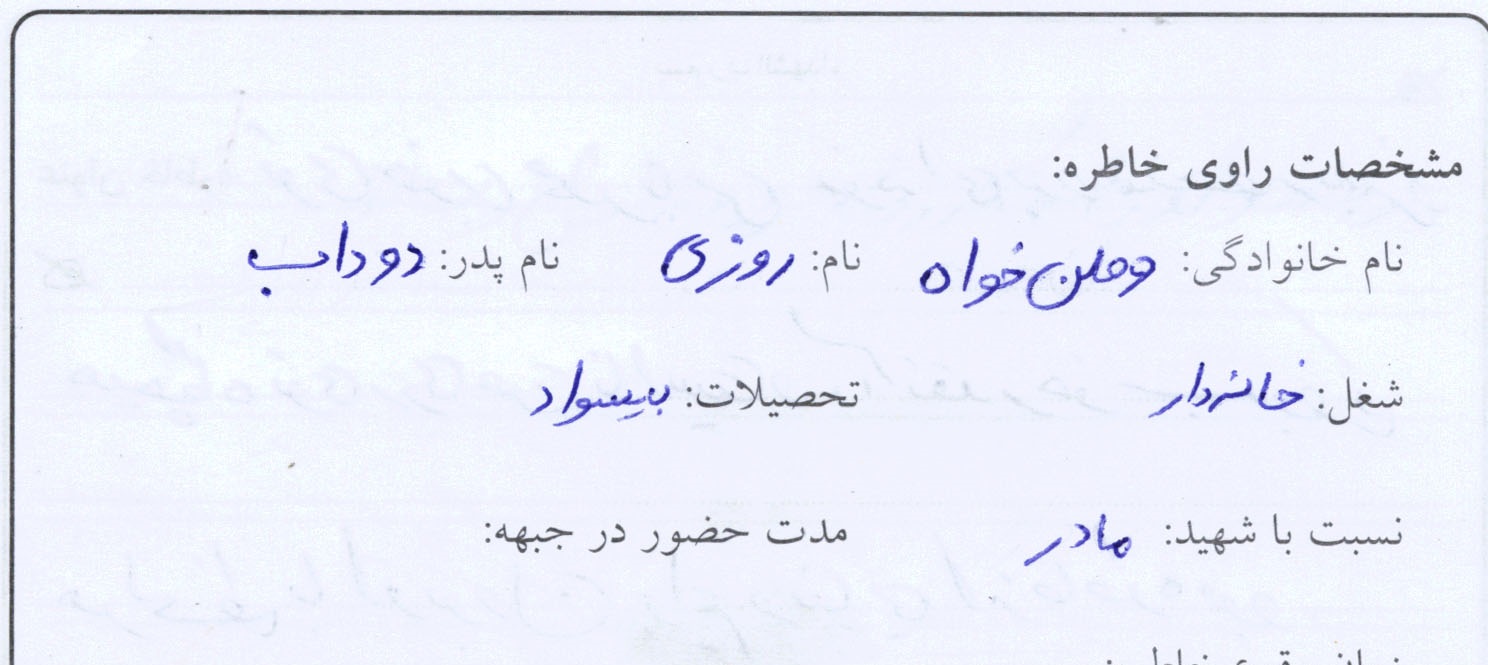 مشخصات راوی خاطره:
نام خانوادگی: وطن خواه نام: روزی نام پدر: دوداب
شغل: خانه‌دار تحصیلات: بیسواد
نسبت با شهید: مادر مدت حضور در جبهه: